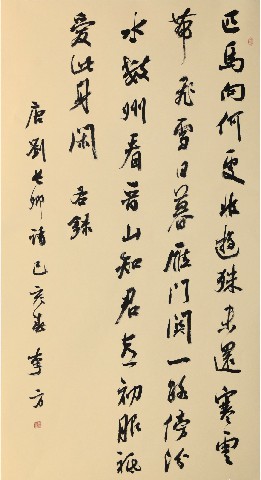 匹馬向何處北遊殊未還寒雲
帶飛雪日暮雁門關一路傍汾
水數州看晉山知君喜初服祗
愛此身閑 右錄
唐劉長卿詩己亥春李方